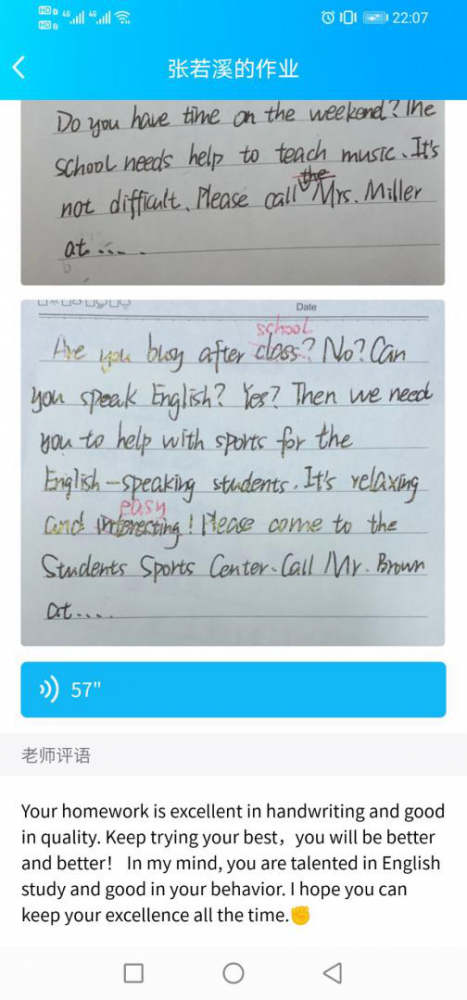 22:07
张若溪的作业
Do you have time on the weekend? The
school needs help to teach music. It's
the
not difficult. Please call Mrs. Miller
at....
Date
school
Are you busy after class? No? Can
you speak English? Yes? Then we need
you to help with sports for the
English-speaking students. It's relaxing
easy
and interecting! Please come to the
Students Sports Center. Call Mr. Brown
at....
57"
老师评语
Your homework is excellent in handwriting and good
in quality. Keep trying your best，you will be better
and better！ In my mind, you are talented in English
study and good in your behavior. I hope you can
keep your excellence all the time.✊